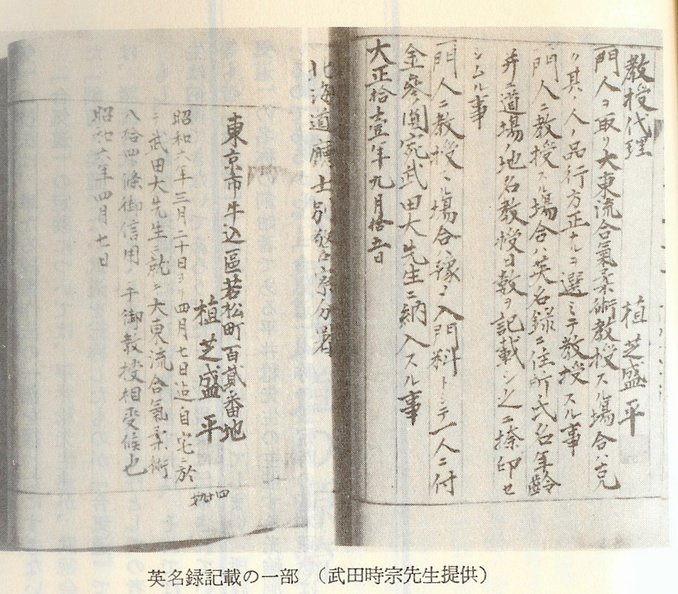 教授代理
植芝盛平
門人ヲ取リ大東流合氣柔術教授スル場合ハ克
ク其ノ人ノ品行方正ナルヲ選ミテ教授スル事
門人ニ教授スル場合ハ英名録ニ住所氏名年齢
并ニ道場ノ地名教授日数ヲ記載シ之ニ捺印セ
シムル事
門人ニ教授スル場合ハ謝 入門料トシテ一人ニ付
金参圓宛武田大先生ニ納入スル事
大正拾壹年九月拾五日
北海道廳士別警察分署
東京市牛込區若松町百貳番地
植芝盛平
昭和六年三月二十日ヨリ四月七日迠自宅於
テ武田大先生ニ就テ大東流合氣柔術
八拾四條御信用ノ手御教授相受候也
昭和六年四月七日
英名録記載の一部 (武田時宗先生提供)